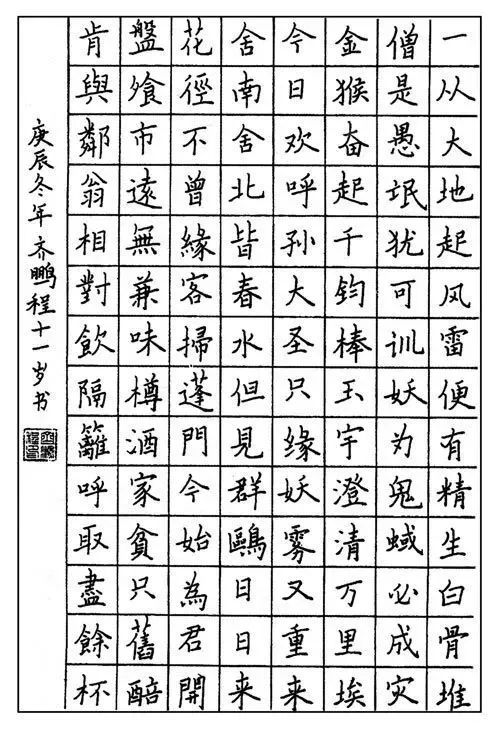 一从大地起风雷便有精生白骨堆
僧是愚氓犹可训妖为鬼蜮必成灾
金猴奋起千钧棒玉宇澄清万里埃
今日欢呼孙大圣只缘妖雾又重来
舍南舍北皆春水但見群鷗日日来
花徑不曾緣客掃蓬門今始為君開
盤飧市遠無兼味樽酒家貧只舊醅
肯與鄰翁相對飲隔籬呼取盡餘杯
庚辰冬年齐鹏程十一岁书